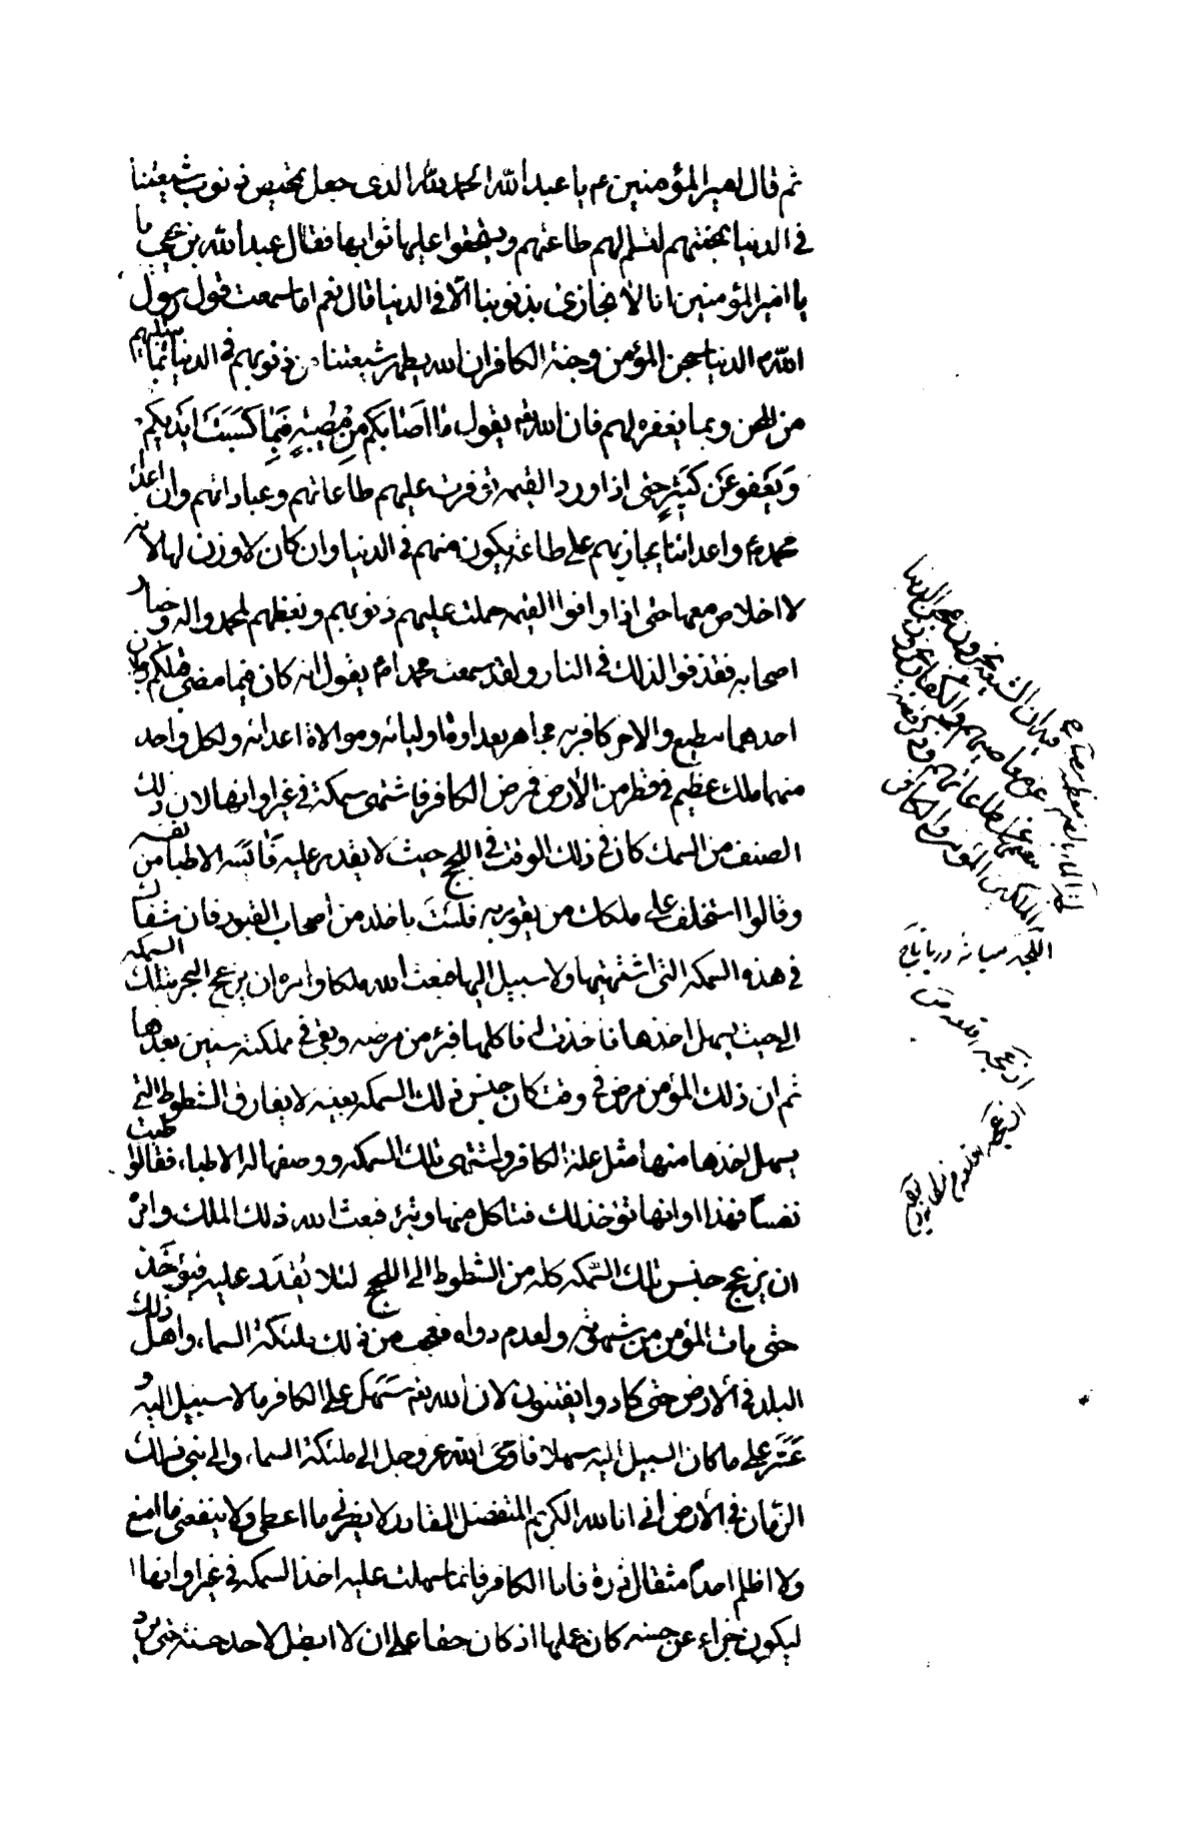 ثم قال امير المؤمنين ع يا عبد الله الحمد لله الذى جعل تمحيص ذنوب شيعتنا
فى الدنيا بمحنتهم لتسلم لهم طاعتهم ويستحقوا عليها ثوابها فقال عبد الله بن يحيى
يا امير المؤمنين انا لا نجازى بذنوبنا الا فى الدنيا قال نعم اما سمعت قول رسول
الله ص الدنيا سجن المؤمن وجنة الكافر ان الله يطهر شيعتنا من ذنوبهم فى الدنيا بما يبتليهم
من المحن وبما يغفره لهم فان الله تع يقول ما اَصَابَكم مِن مُصِيبةٍ فَبِمَا كَسَبَت اَيديكم
وَيَعفو عَن كَثيرٍ حتى اذا ورد القيمه توفرت عليهم طاعاتهم وعباداتهم وان اعداء
محمد ص واعدائنا يجازيهم على طاعة يكون منهم فى الدنيا وان كان لا وزن لها لانه
لا اخلاص معها حتى اذا وافوا القيمه حملت عليهم ذنوبهم وبغضهم لمحمد واله وخيار
اصحابه فقذفوا لذلك فى النار ولقد سمعت محمدا ص يقول انه كان فيما مضى قبلكم رجلان
احدهما مطيع والاخر كافر به مجاهر بعداوة اوليائه وموالاة اعدائه ولكل واحد
منهما ملك عظيم فى قطر من الأرض فمرض الكافر فاشتهى سمكة فى غير اوانها لان ذلك
الصنف من السمك كان فى ذلك الوقت فى اللجج حيث لا يقدر عليه فآيسه الاطباء من نفسه
وقالوا استخلف على ملكك من يقوم به فلستَ باخلد من اصحاب القبور فان شفاك
فى هذه السمكه التى اشتهيتها ولا سبيل اليها فبعث الله ملكا وامره ان يزعج البحر بتلك السمكه
الى حيث يسهل اخذها فاخذت له فاكلها فبرئ من مرضه وبقى فى مملكته سنين بعدها
ثم ان ذلك المؤمن مرض فى وقت كان جنس ذلك السمكه بعينه لا يفارق الشطوط التى
يسهل اخذها منها مثل علة الكافر واشتهى تلك السمكه ووصفها له الاطباء، فقالوا طب
نفساً فهذا اوانها تؤخذ لك فتاكل منها وتبرء فبعث الله ذلك الملك وامره
ان يزعج جنس تلك السَمكه كله من الشطوط الى اللجج لئلا يُقدَر عليه فيؤخذ
حتى مات المؤمن من شهوته ولعدم دواه فعجب من ذلك ملئكة السماء، واهل ذلك
البلد فى الأرض حتى كادوا يفتنون لان الله تع سَهل على الكافر ما لا سبيل اليه و
عَسَّر على ما كان السبيل اليه سهلا فاوحَى الله عز وجل الى ملئكة السماء، والى نبى ذلك
الزمان فى الأرض انى انا لله الكريم المتفضل القادر لا يضرنى ما اعطى ولا ينفعنى ما امنع
ولا اظلم احداً مثقال ذرة فاما الكافر فانما سهلت عليه اخذ السمكه فى غير اوانها
ليكون جزاء عن حسنه كان عملها اذ كان حقا على ان لا ابطل لاحد حسنة حتى يرد
اللجة ميانه دريا